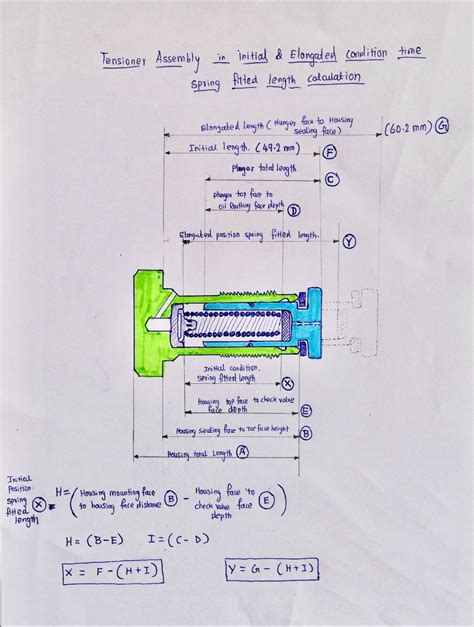 Tensioner Assembly in initial & Elongated condition time
spring fitted length calculation
Elongated length (Plunger face to Housing
sealing face)
(60.2 mm) G
Initial length. (49.2 mm) F
Plager total length
C
plager top face to
oil face depth
D
Elongated position spring fitted length. Y
Initial condition.
spring fitted length X
Housing top face to check valve
face depth E
Housing Seating face to Top face height B
Housing total Length A
Initial
Position
spring X =
fitted
length
H = (Housing mounting face
to housing face distance B - Housing face to
check valve face
depth E)
H = (B-E) I = (C-D)
X = F-(H+I)
Y = G-(H+I)